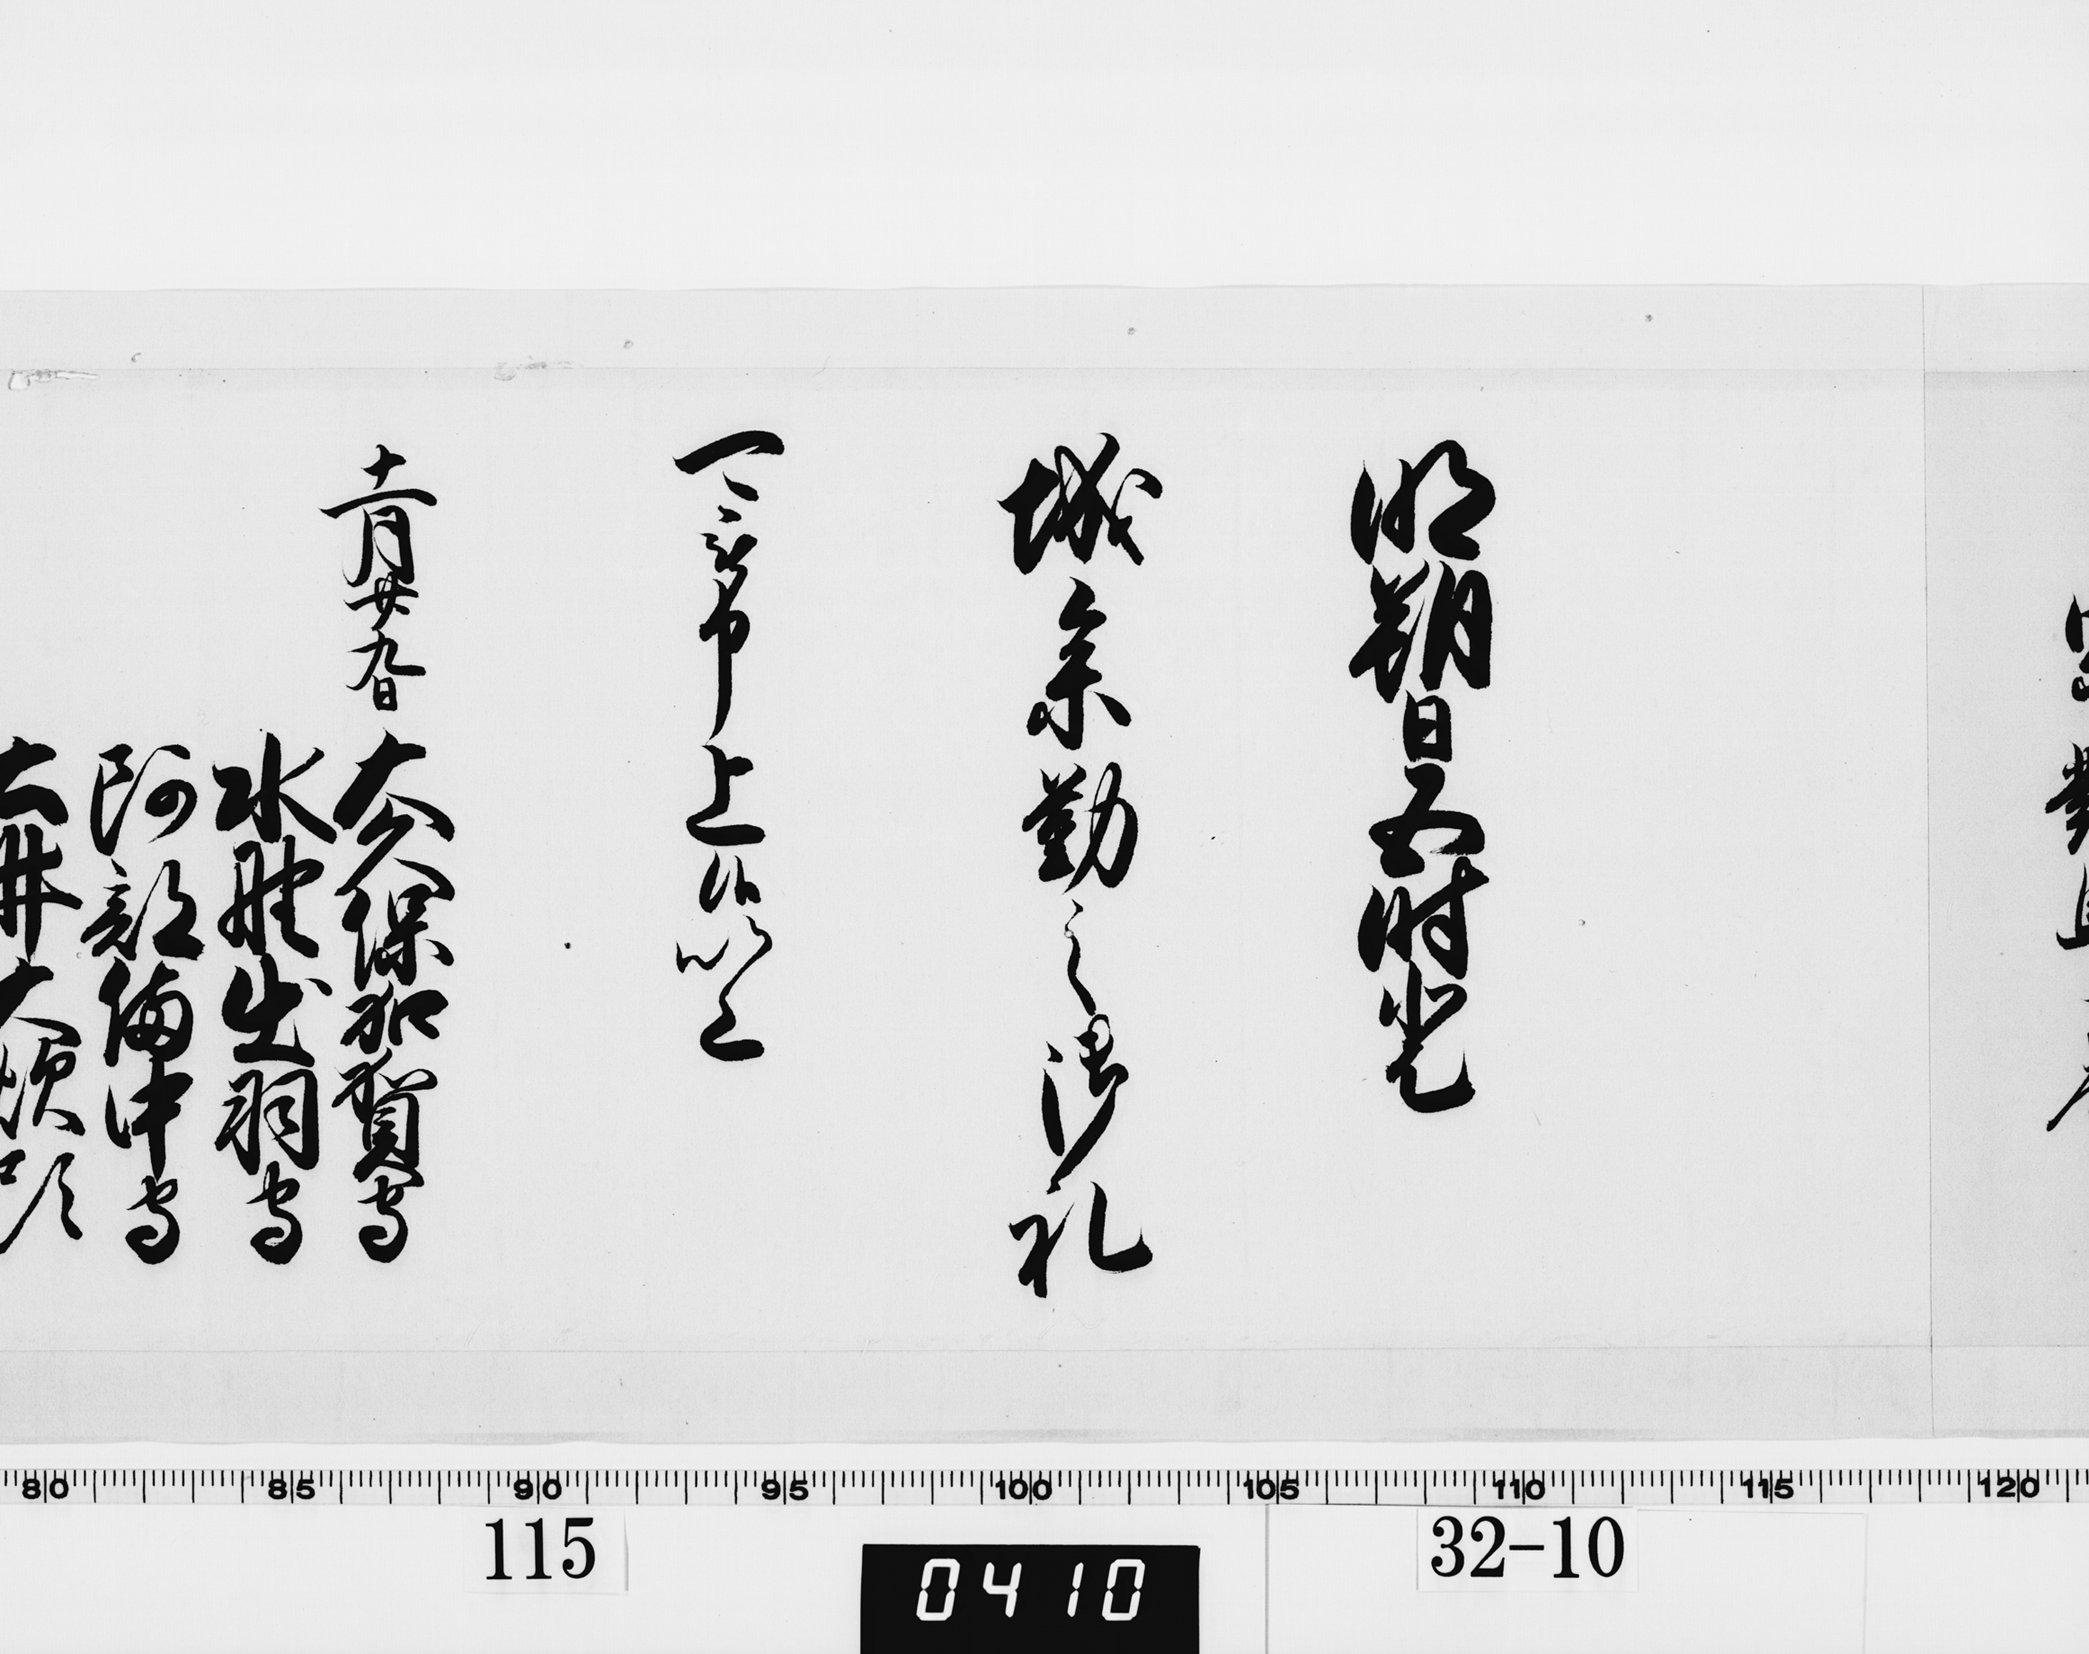 明朔日五時登
城参勤之御礼
可被申上候以上
十一月廿九日 大久保加賀守
水野出羽守
阿部備中守
土井大炊頭
80 85 90 95 100 105 110 115 120
115
0410
32-10